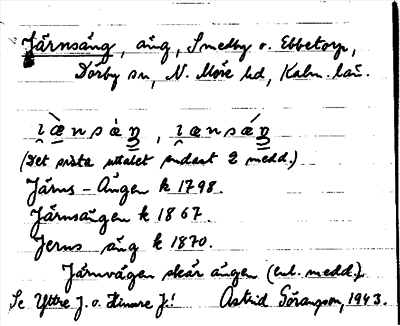 Järnsäng, äng, Smedby o. Ebbetorp,
Dörby sn, N. Möre hd, Kalm. län.
i̯æ̀nsàŋ, i̯ænsáŋ
(Det sista uttalet endast 2 medd.)
Järns-Ängen k 1798.
Järnsängen k 1867.
Jerns äng k 1870.
Järnvägen skär ängen (enl. medd.)
Se Yttre J. o. Hinnre J.! Astrid Göransson, 1943.